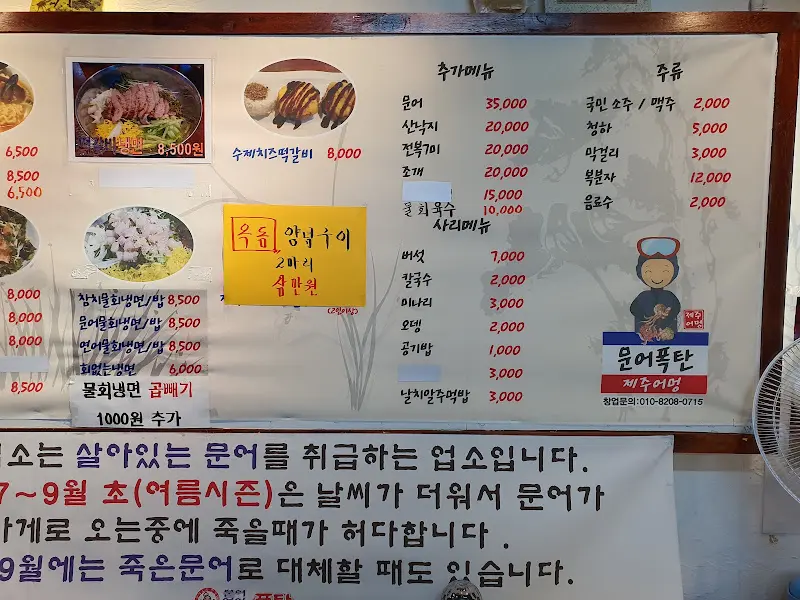 6,500
8,500
6,500
8,000
8,000
8,000
8,500
냉면 8,500원
참치물회냉면/밥 8,500
문어물회냉면/밥 8,500
연어물회냉면/밥 8,500
회없는냉면 6,000
물회냉면 곱빼기
1000원 추가
수제치즈떡갈비 8,000
옥돔 양념구이
2마리
삼만원
(2인이상)
추가메뉴
문어 35,000
산낙지 20,000
전복7미 20,000
조개 20,000
15,000
물회육수 10,000
사리메뉴
버섯 7,000
칼국수 2,000
미나리 3,000
오뎅 2,000
공기밥 1,000
3,000
날치알주먹밥 3,000
주류
국민 소주 / 맥주 2,000
청하 5,000
막걸리 3,000
복분자 12,000
음료수 2,000
제주
어멍
문어폭탄
제주어멍
창업문의:010-8208-0715
소는 살아있는 문어를 취급하는 업소입니다.
7~9월 초(여름시즌)은 날씨가 더워서 문어가
가게로 오는중에 죽을때가 허다합니다.
9월에는 죽은문어로 대체할 때도 있습니다.